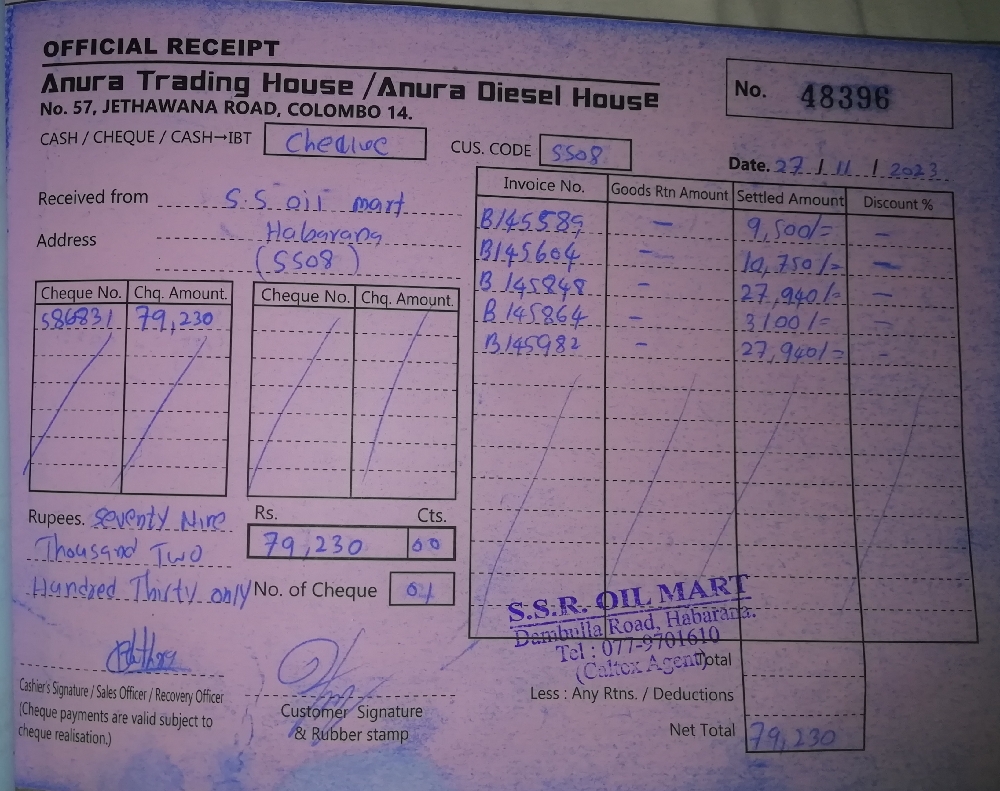 OFFICIAL RECEIPT
Anura Trading House / Anura Diesel House
No. 57, JETHAWANA ROAD, COLOMBO 14.
No. 48396
CASH / CHEQUE / CASH→IBT Cheque
CUS. CODE SS08
Date. 27 / 11 / 2023
Received from S.S oil mart
Address Habarana
(SS08)
Cheque No. Chq. Amount. Cheque No. Chq. Amount.
586831 79,230
Invoice No. Goods Rtn Amount Settled Amount Discount %
B145589 – 9,500/= –
B145604 – 10,750/= –
B145848 – 27,940/= –
B145864 – 3100/= –
B145982 – 27,940/= –
Rupees. Seventy Nine
Thousand Two
Hundred Thirty only
Rs. Cts.
79,230 00
No. of Cheque 01
S.S.R. OIL MART
Dambulla Road, Habarana.
Tel : 077-9701610
(Caltex Agent)
Total
Less : Any Rtns. / Deductions
Net Total 79,230
Cashier's Signature / Sales Officer / Recovery Officer
(Cheque payments are valid subject to
cheque realisation.)
Customer Signature
& Rubber stamp